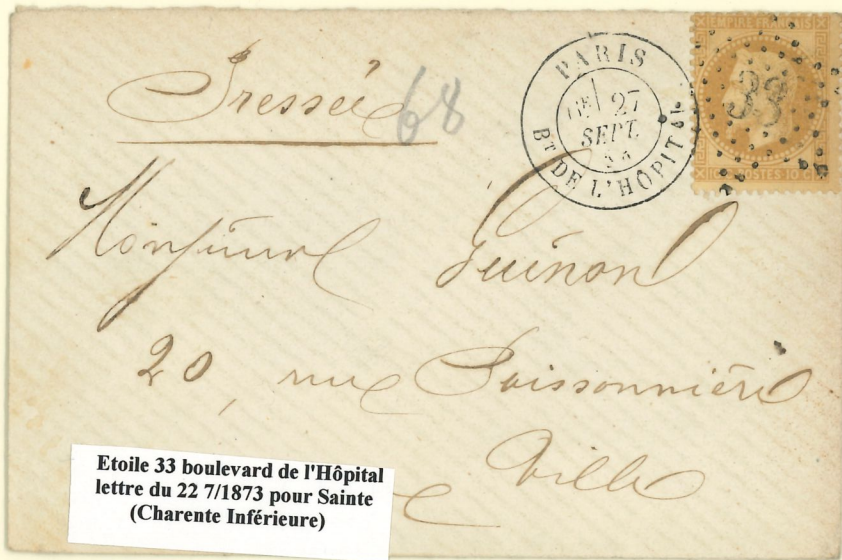 Pressée
68
PARIS
27
SEPT.
Bt DE L'HÔPITAL
EMPIRE FRANÇAIS
33
POSTES 10 C
Monsieur Guinon
20, rue Poissonnière
Ville
Etoile 33 boulevard de l'Hôpital
lettre du 22 7/1873 pour Sainte
(Charente Inférieure)